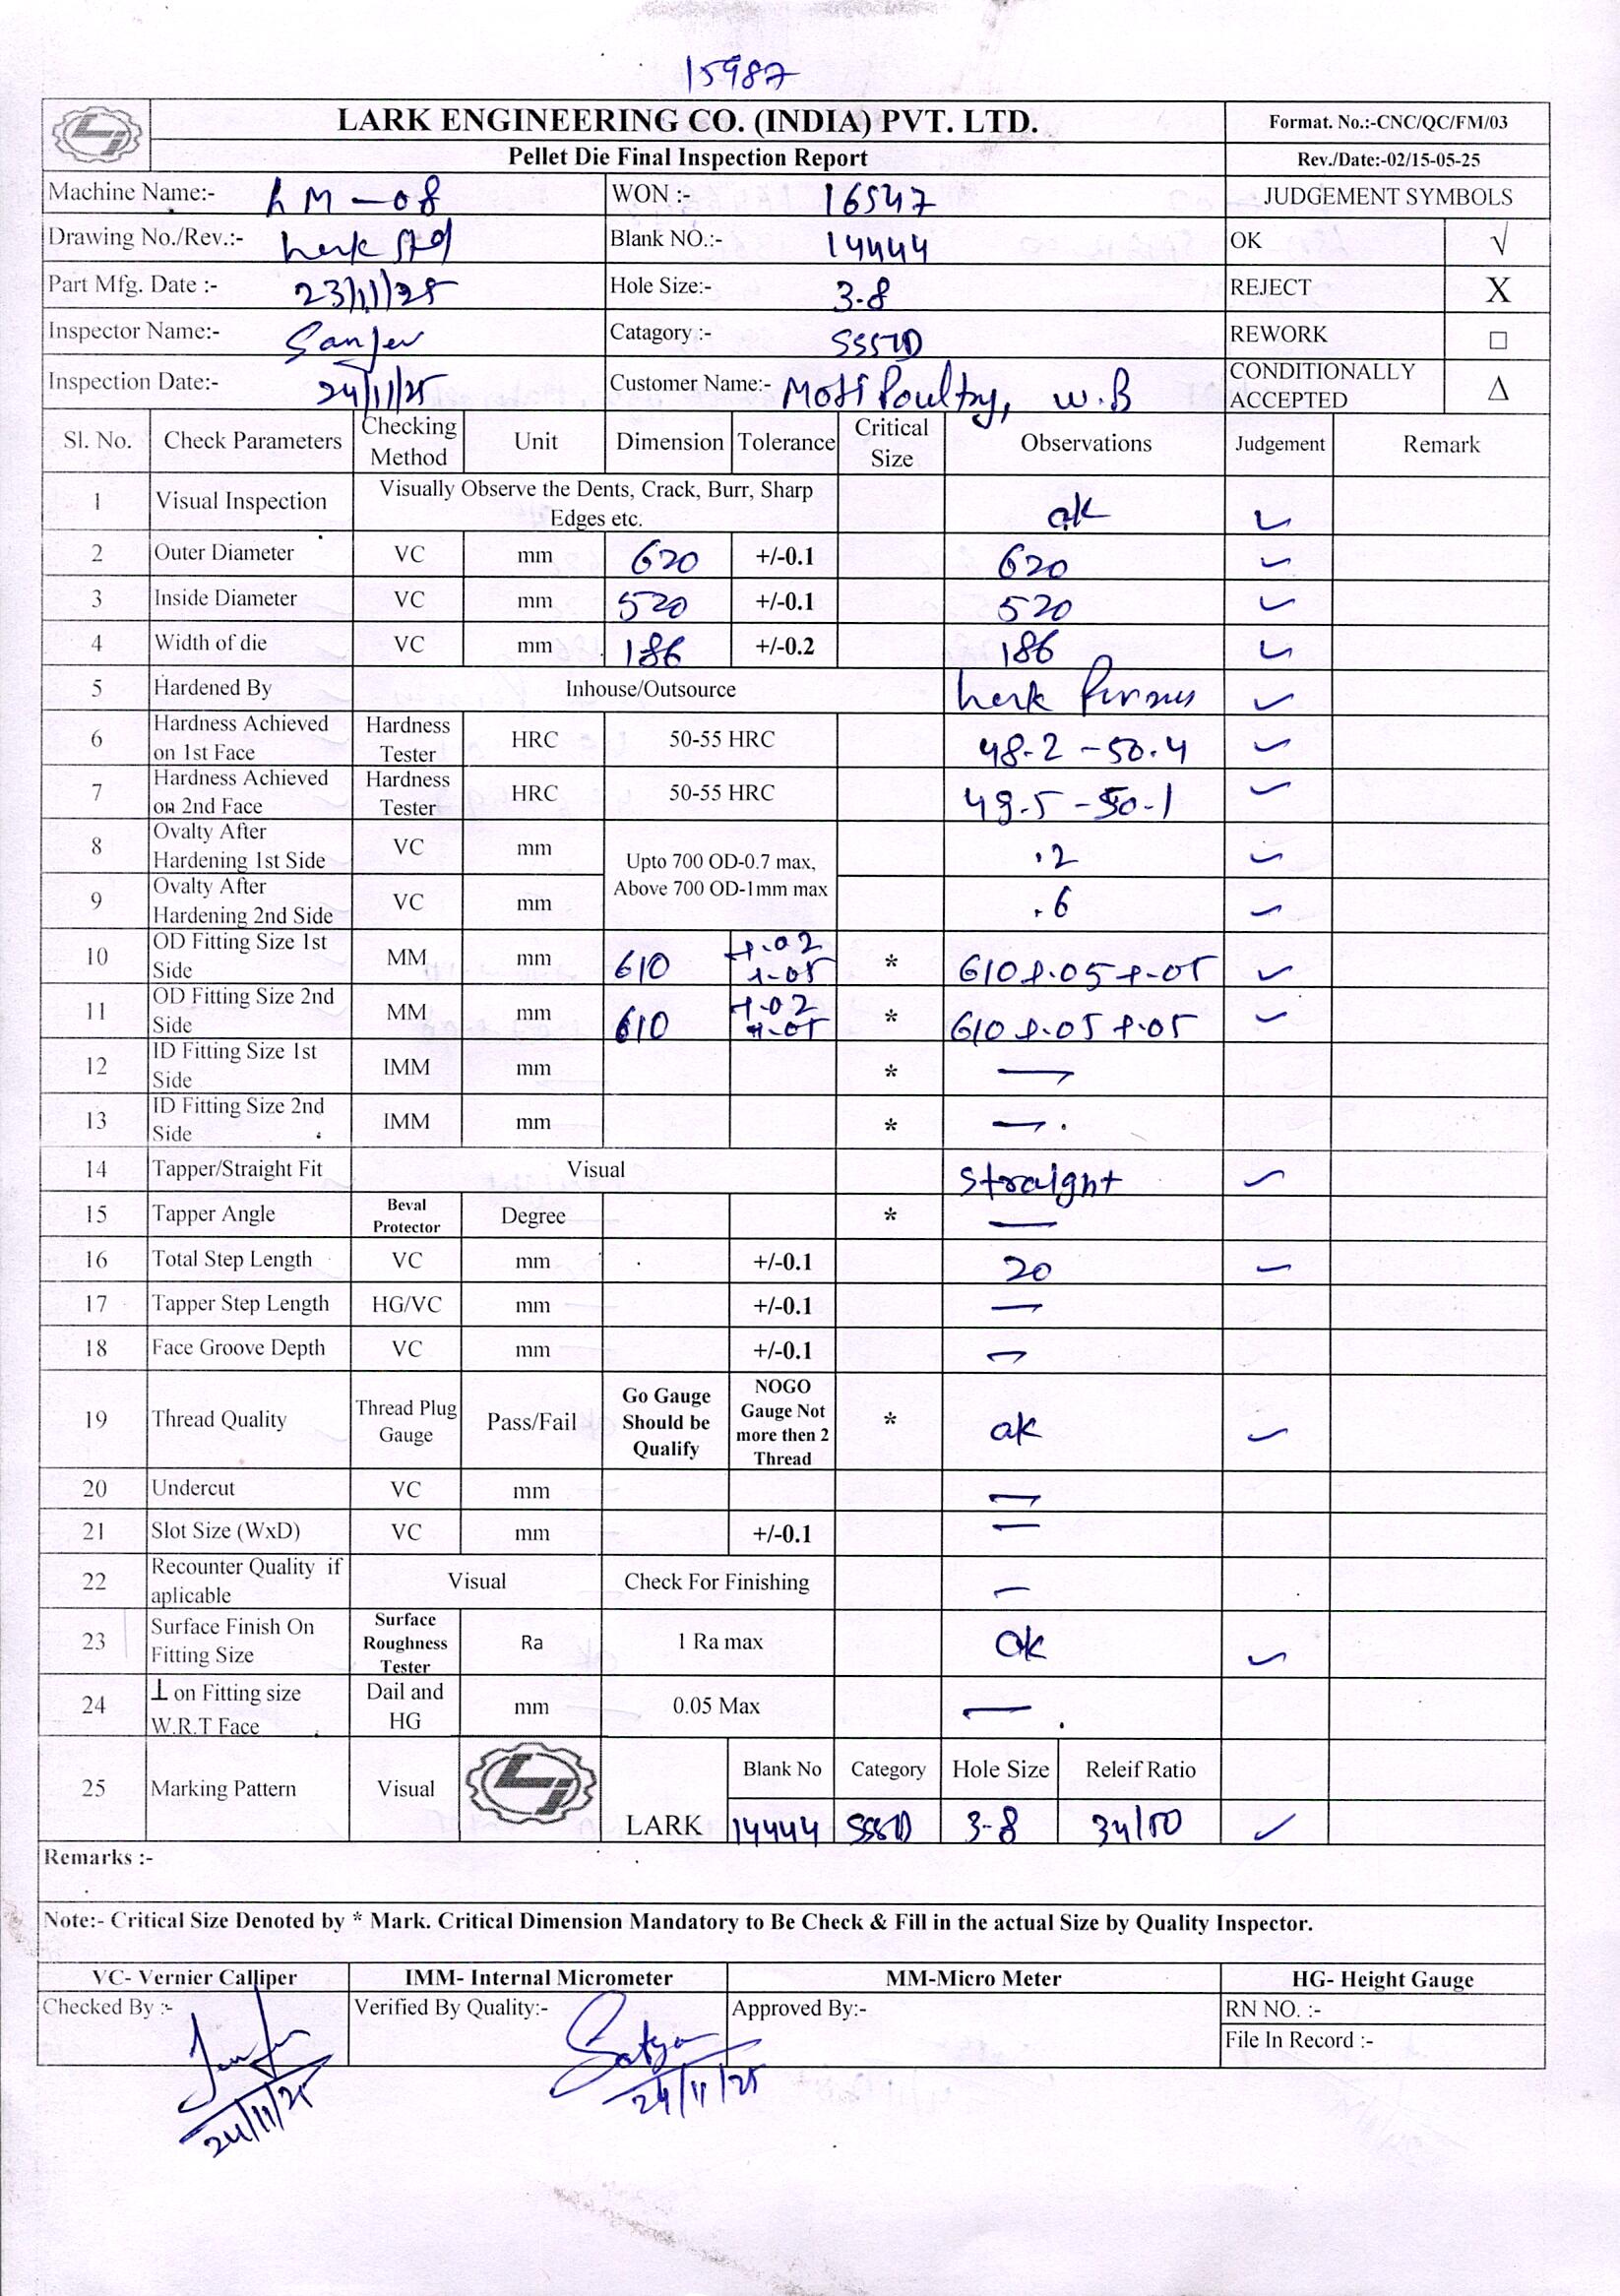 15987
LARK ENGINEERING CO. (INDIA) PVT. LTD.
Format. No.:-CNC/QC/FM/03
Pellet Die Final Inspection Report
Rev./Date:-02/15-05-25
Machine Name:- LM-08 WON :- 16547 JUDGEMENT SYMBOLS
Drawing No./Rev.:- Lark Std Blank NO.:- 14444 OK √
Part Mfg. Date :- 23/11/25 Hole Size:- 3.8 REJECT X
Inspector Name:- Sanjev Catagory :- SSSTD REWORK □
Inspection Date:- 24/11/25 Customer Name:- Moti Poultry, W.B CONDITIONALLY ACCEPTED Δ
Sl. No. Check Parameters Checking Method Unit Dimension Tolerance Critical Size Observations Judgement Remark
1 Visual Inspection Visually Observe the Dents, Crack, Burr, Sharp Edges etc. ok ✓
2 Outer Diameter VC mm 620 +/-0.1 620 ✓
3 Inside Diameter VC mm 520 +/-0.1 520 ✓
4 Width of die VC mm 186 +/-0.2 186 ✓
5 Hardened By Inhouse/Outsource Lark ✓
6 Hardness Achieved on 1st Face Hardness Tester HRC 50-55 HRC 48.2 - 50.4 ✓
7 Hardness Achieved on 2nd Face Hardness Tester HRC 50-55 HRC 49.5 - 50.1 ✓
8 Ovalty After Hardening 1st Side VC mm Upto 700 OD-0.7 max, Above 700 OD-1mm max .2 ✓
9 Ovalty After Hardening 2nd Side VC mm .6 ✓
10 OD Fitting Size 1st Side MM mm 610 +.02 +.05 * 610 +.05 +.05 ✓
11 OD Fitting Size 2nd Side MM mm 610 +.02 +.05 * 610 +.05 +.05 ✓
12 ID Fitting Size 1st Side IMM mm * —
13 ID Fitting Size 2nd Side IMM mm * —
14 Tapper/Straight Fit Visual Straight ✓
15 Tapper Angle Beval Protector Degree * —
16 Total Step Length VC mm +/-0.1 20 ✓
17 Tapper Step Length HG/VC mm +/-0.1 —
18 Face Groove Depth VC mm +/-0.1 —
19 Thread Quality Thread Plug Gauge Pass/Fail Go Gauge Should be Qualify NOGO Gauge Not more then 2 Thread * ok ✓
20 Undercut VC mm —
21 Slot Size (WxD) VC mm +/-0.1 —
22 Recounter Quality if aplicable Visual Check For Finishing —
23 Surface Finish On Fitting Size Surface Roughness Tester Ra 1 Ra max ok ✓
24 ⊥ on Fitting size W.R.T Face Dail and HG mm 0.05 Max —
25 Marking Pattern Visual LARK Blank No Category Hole Size Releif Ratio
14444 SSSTD 3.8 34/50 ✓
Remarks :-
Note:- Critical Size Denoted by * Mark. Critical Dimension Mandatory to Be Check & Fill in the actual Size by Quality Inspector.
VC- Vernier Calliper IMM- Internal Micrometer MM-Micro Meter HG- Height Gauge
Checked By :- Verified By Quality:- Satya Approved By:- RN NO. :-
File In Record :-
24/11/25 24/11/25